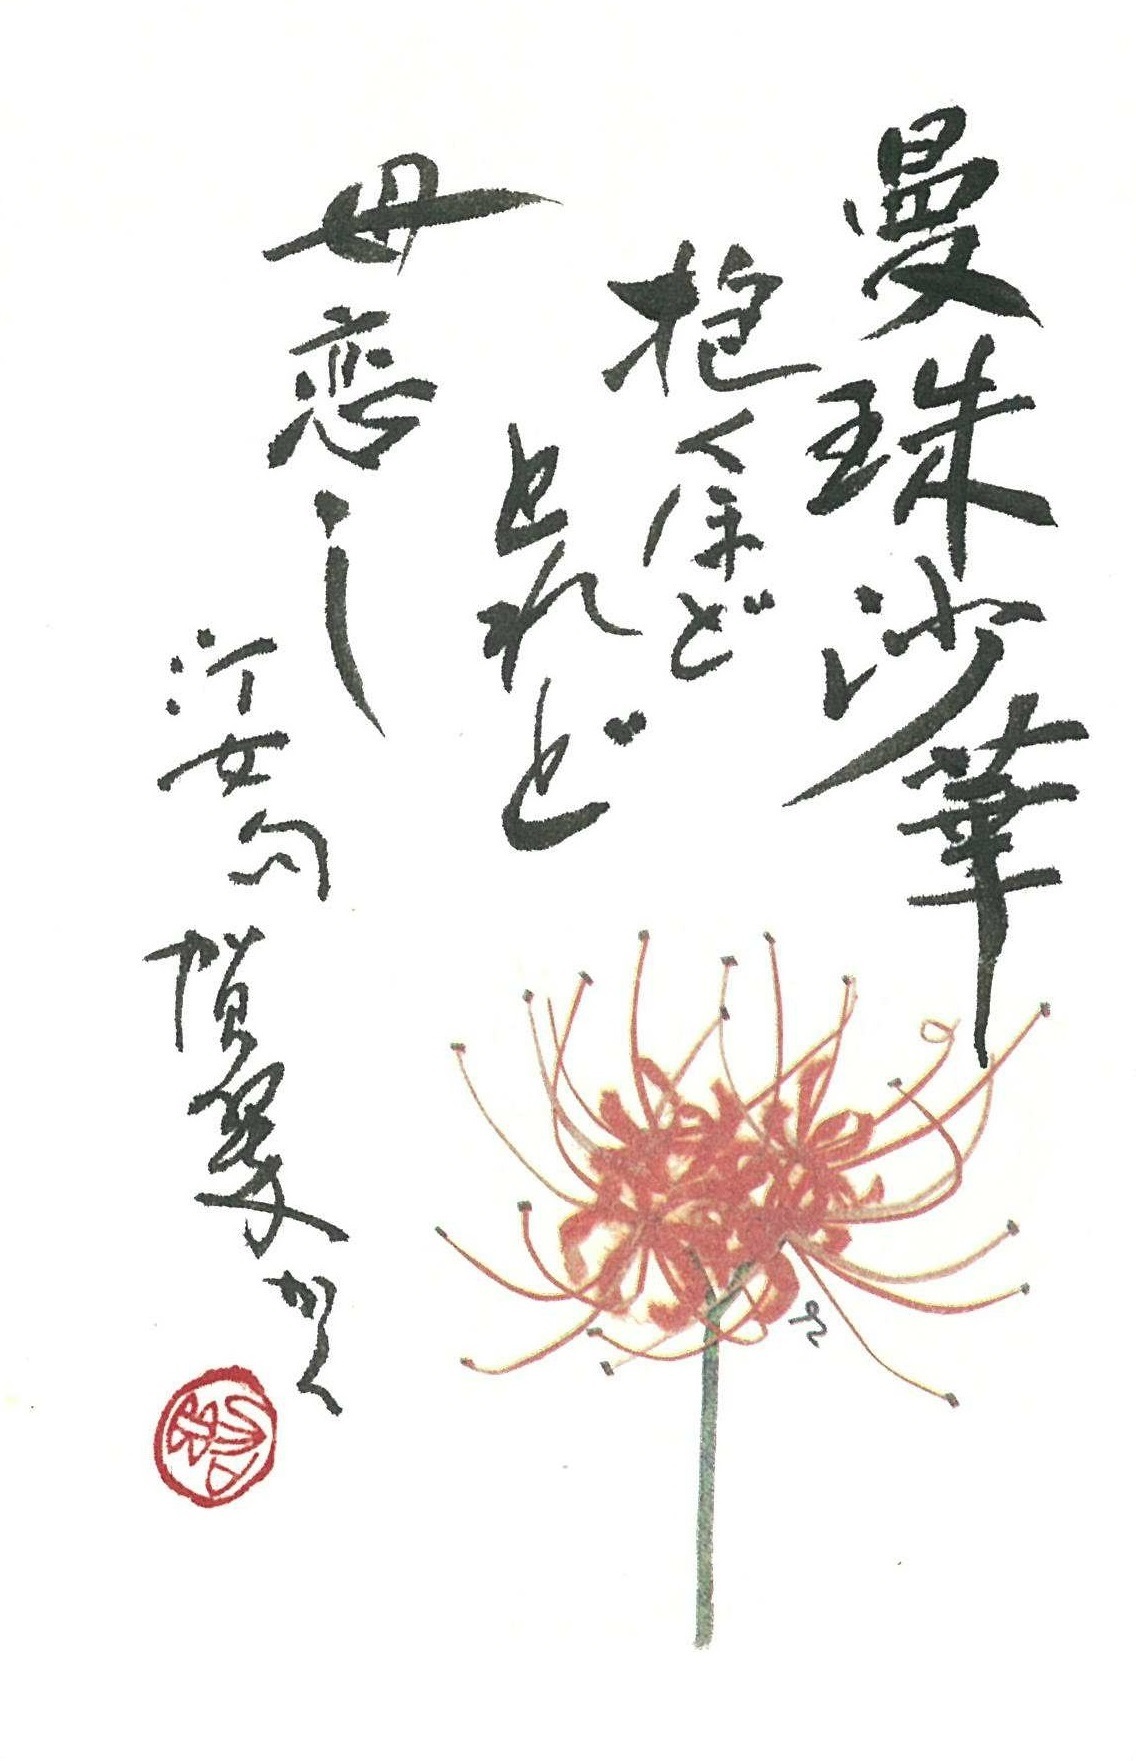 曼珠沙華
抱くほど
とれど
母恋し
汀女句
かく